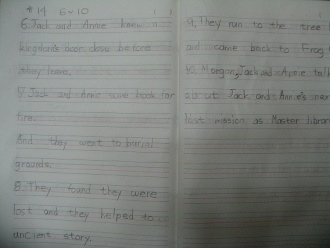 #14 6~10
6. Jack and Annie knew
kingdom's door close before
they leave.
7. Jack and Annie save book for
fire.
And they went to burial
grounds.
8. They fund they were
lost and they helped to
ancient story.
9. They run to the tree
and came back to Frog
10. Morgan, Jack and Annie talk
about Jack and Annie's new
last mission as Master librar